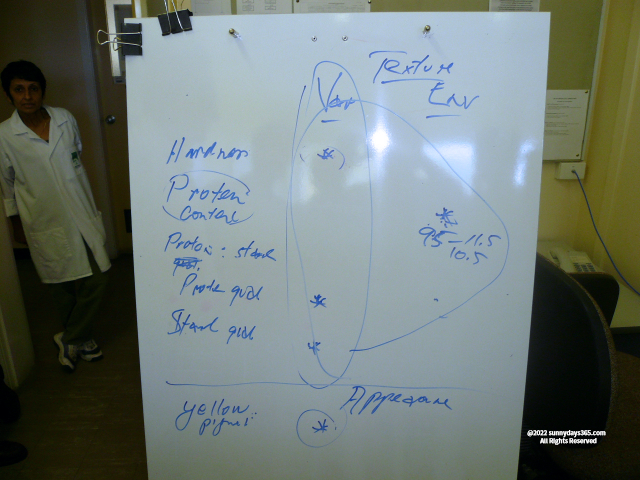 Texture
Var
Env
Hardness
*
(*)
Protein
Content
*
95 – 11.5
10.5
Protein : starch
Prote qual
*
Starch qual
*
Appearance
yellow
pigmt:
*
@2022 sunnydays365.com
All Rights Reserved